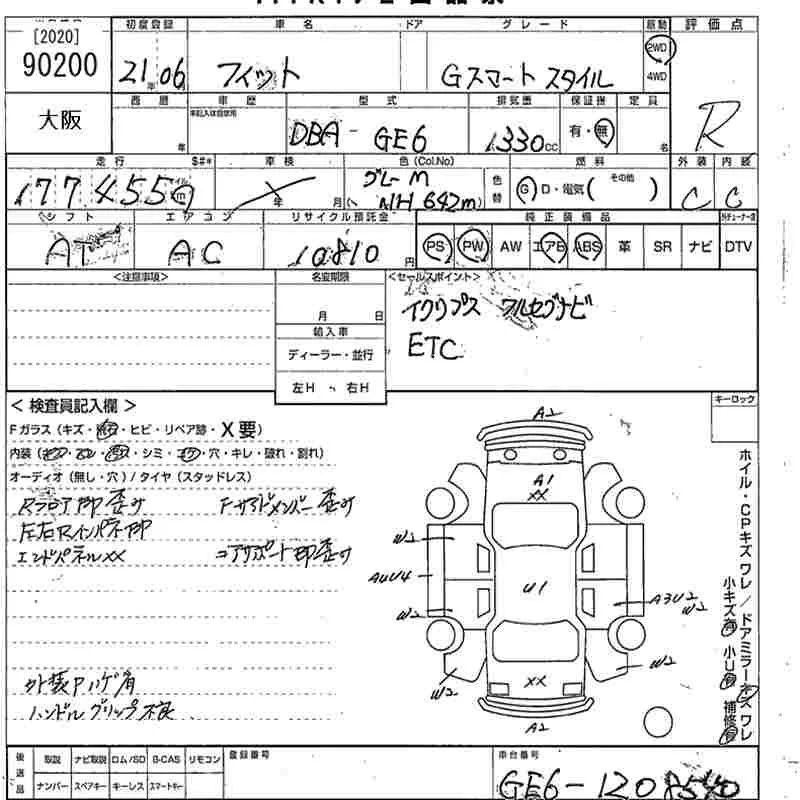 [2020]
90200
大阪
初度登録 車名 ドア グレード 駆動 評価点
21年06 フィット Gスマート スタイル 2WD 4WD R
西暦 車歴 型式 排気量 保証書 定員
未記入は自家用
年 DBA-GE6 1330cc 有・無 名
走行 $#* 車検 色(Col.No) 燃料 外装 内装
177455 マイル km 年 月 グレーM NH642m 色替 G D・電気( その他 ) C C
シフト エアコン リサイクル預託金 純正装備品
AT AC 10810円 PS PW AW エアB ABS 革 SR ナビ DTV
<注意事項> 名変期限 <セールスポイント>
月 日
イクリプス ワルセグナビ
ETC
輸入車
ディーラー・並行
左H 右H
< 検査員記入欄 > キーロック
Fガラス(キズ・・ヒビ・リペア跡・X要)
内装(・・・シミ・・穴・キレ・破れ・割れ)
オーディオ(無し・穴)/タイヤ(スタッドレス)
Rフロア 歪み Fサイドメンバー歪み
左右Rインパネ
エンドパネルXX コアサポート 歪み
外装
ハンドルグリップ不良
A2
A1
XX
W2
A4U4 U1 A3U2
W2
W2
W2 W2
XX
A2
ホイル・CPキズ ワレ/ドアミラーキズ ワレ
小キズ有 小U有 補修有
後送品 取説 ナビ取説 ロム/SD B-CAS リモコン 登録番号 車台番号
ナンバー スペアキー キーレス スマートキー GE6-1208540